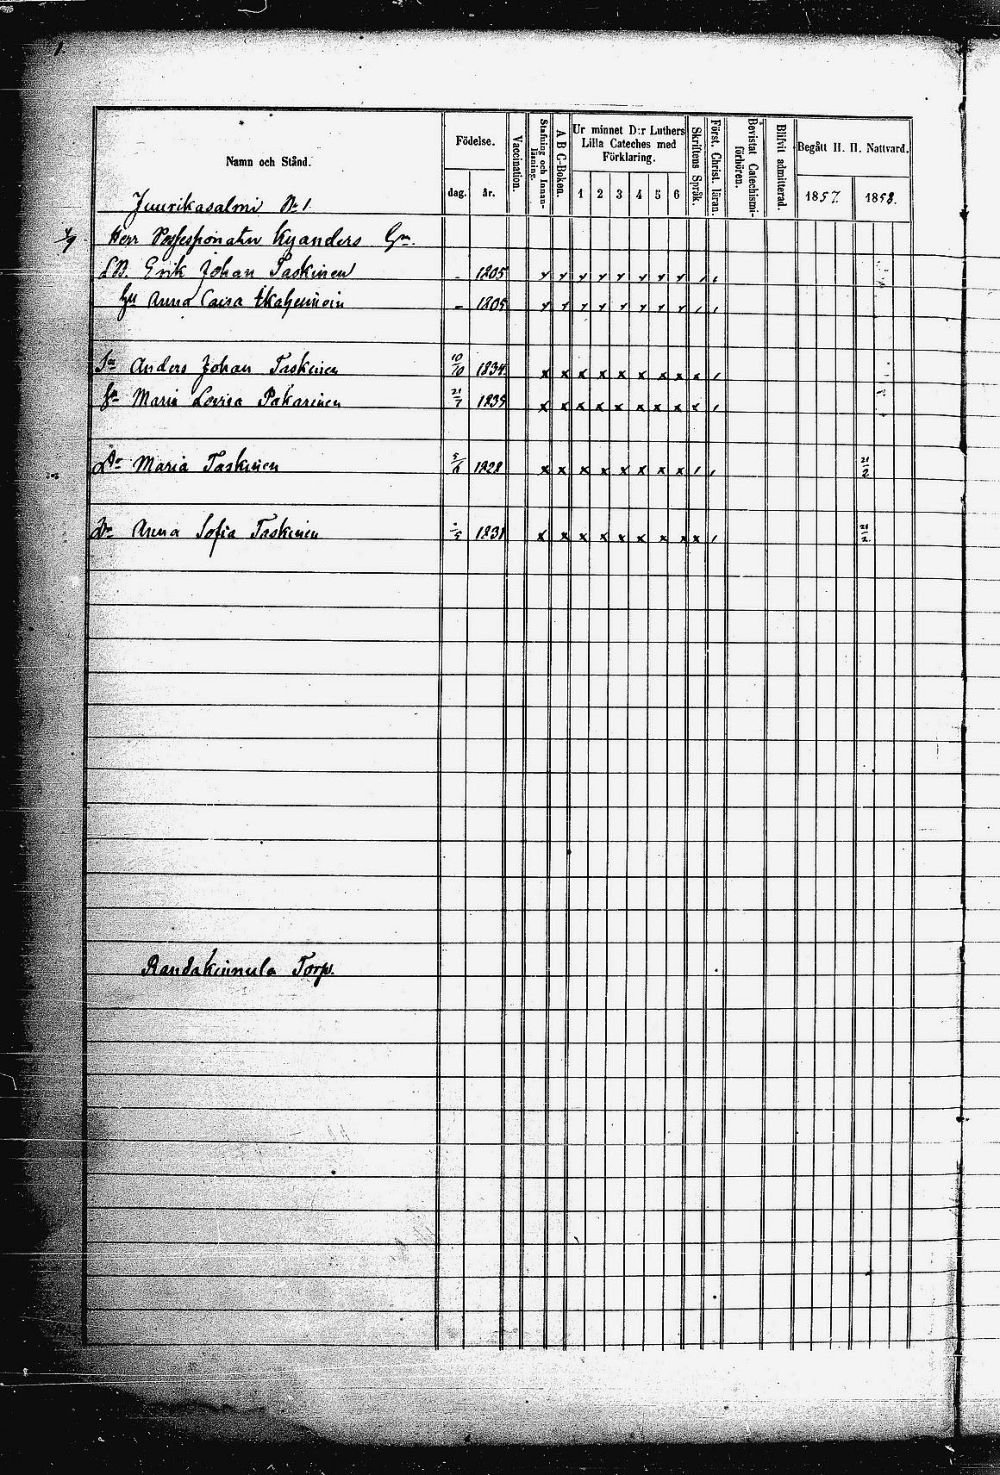 Namn och Stånd.
Födelse.
dag.
år.
Vaccination.
Stafning och Innanläsning.
A B C-Boken.
Ur minnet D:r Luthers
Lilla Cateches med
Förklaring.
1 2 3 4 5 6
Skriftens Språk.
Först. Christ. läran.
Bevistat Catechismiförhören.
Blifvit admitterad.
Begått H. H. Nattvard.
1857. 1858.
Juurikasalmi No 1.
Herr Possessionaten Kyanders
Erik Johan Taskinen - 1805
Anna Caisa - 1805
Sn Anders Johan Taskinen 10/10 1834
Maria Lovisa Pakarinen 21/7 1835
Dr Maria Taskinen 5/6 1828 21/2
Dr Anna Sofia Taskinen 1831 21/2
Randakinnula Torp.